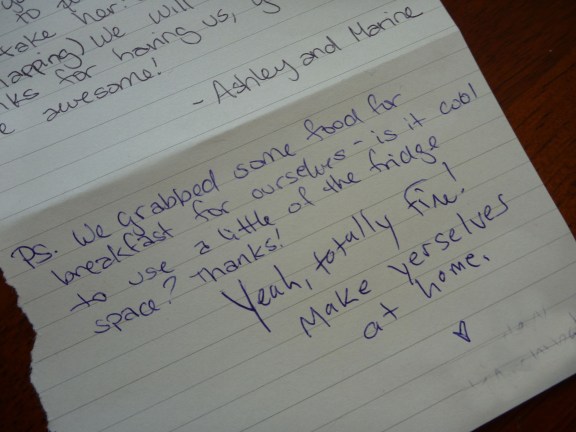 to
take her
napping) We will
for having us,
awesome!
- Ashley and Marine
PS. We grabbed some food for
breakfast for ourselves - is it cool
to use a little of the fridge
space? Thanks!
Yeah, totally fine!
Make yerselves
at home.